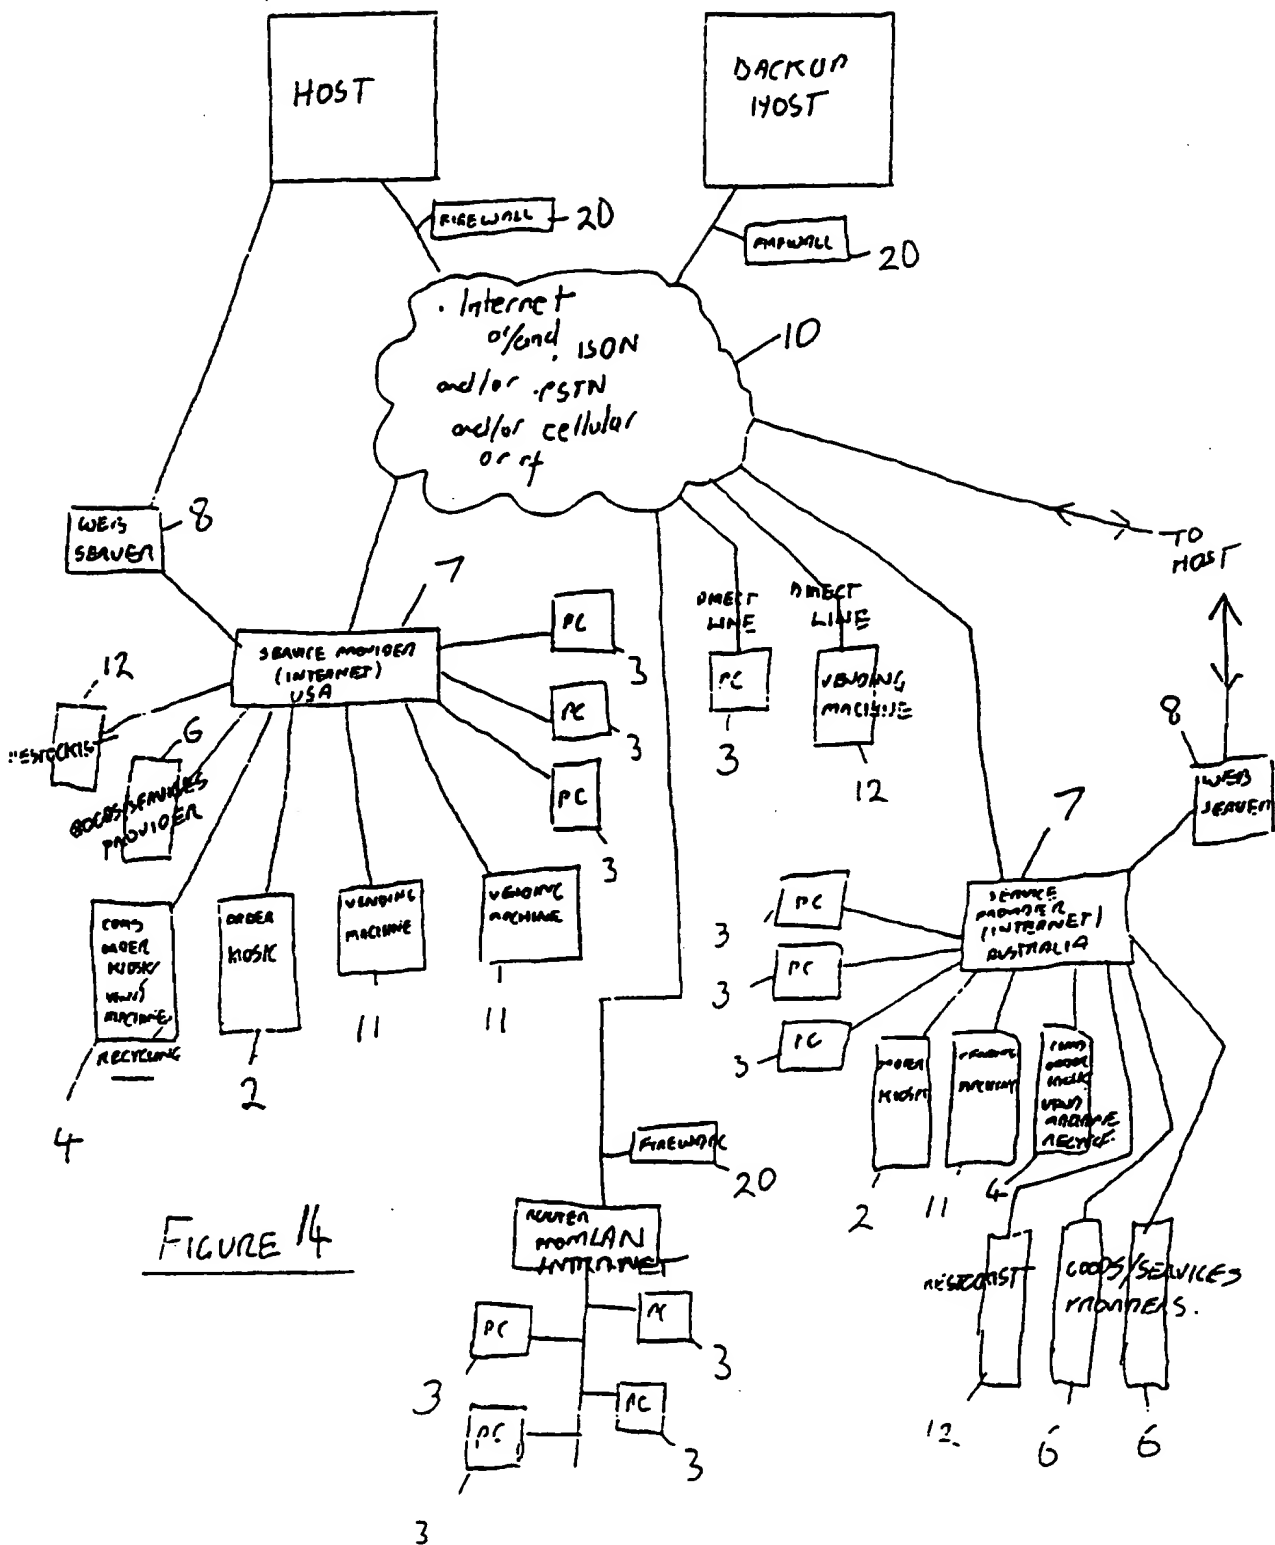 HOST
BACKUP
HOST
FIREWALL
20
FIREWALL
20
. Internet
or/and
. ISDN
and/or . PSTN
and/or cellular
or rf
10
WEB
SERVER
8
TO
HOST
7
SERVICE PROVIDER
(INTERNET)
USA
PC
3
PC
3
PC
3
DIRECT
LINE
PC
3
DIRECT
LINE
VENDING
MACHINE
12
8
WEB
SERVER
12
RESTOCKIST
6
GOODS/SERVICES
PROVIDER
COMB
ORDER
KIOSK/
VEND
MACHINE
RECYCLING
4
ORDER
KIOSK
2
VENDING
MACHINE
11
VENDING
MACHINE
11
7
SERVICE
PROVIDER
(INTERNET)
AUSTRALIA
PC
3
PC
3
PC
3
ORDER
KIOSK
2
VENDING
MACHINE
11
COMB
ORDER
KIOSK
VEND
MACHINE
RECYCLE.
4
FIREWALL
20
ROUTER
FROM LAN
INTERNET
PC
3
PC
3
PC
3
PC
3
RESTOCKIST
12
GOODS/SERVICES
PROVIDERS.
6
6
FIGURE 14